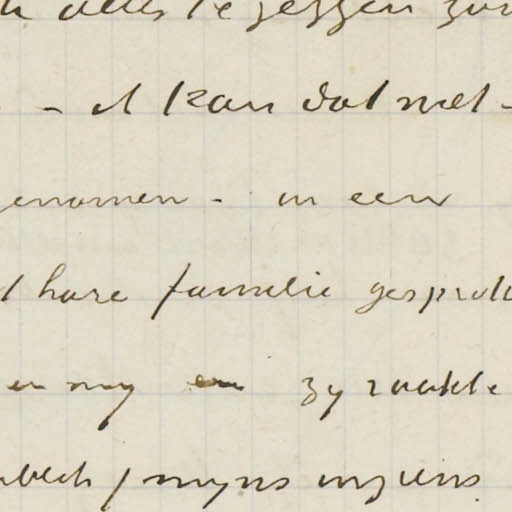 alles te zeggen
- ik kan dat niet -
genomen - in een
hare familie gesprok
en my zy raakte
myns inziens